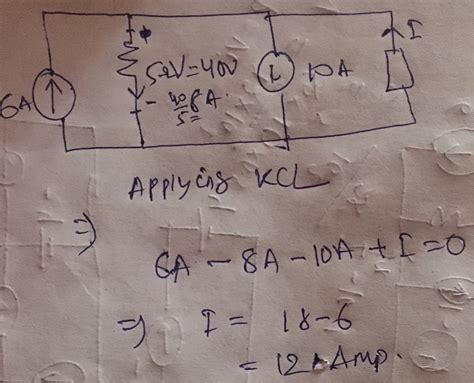 I
6A
5Ω V=40V
L
10A
- 40/5 8A.
Applying KCL
⇒
6A - 8A - 10A + I = 0
⇒ I = 18-6
= 12 Amp.